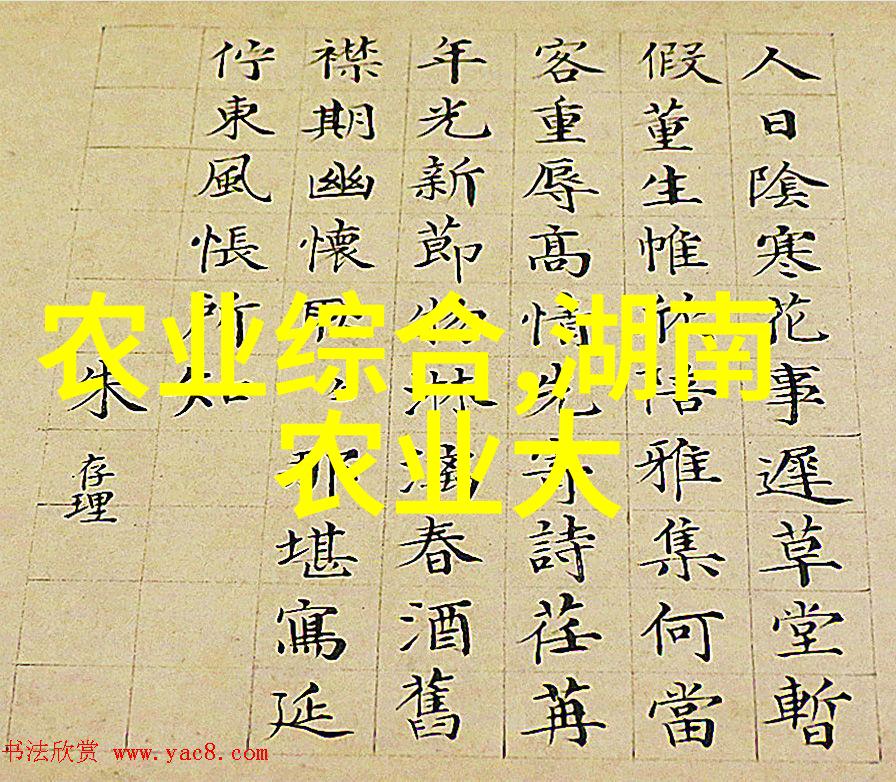 人日陰寒花事遲草堂暫
假董生帷欣陪雅集何當
客重辱高情先寄詩荏苒
年光新節物淋漓春酒舊
襟期幽懷那堪寫延
佇東風悵所知
朱存理
农业综合,湖南
农业大
书法欣赏 www.yac8.com